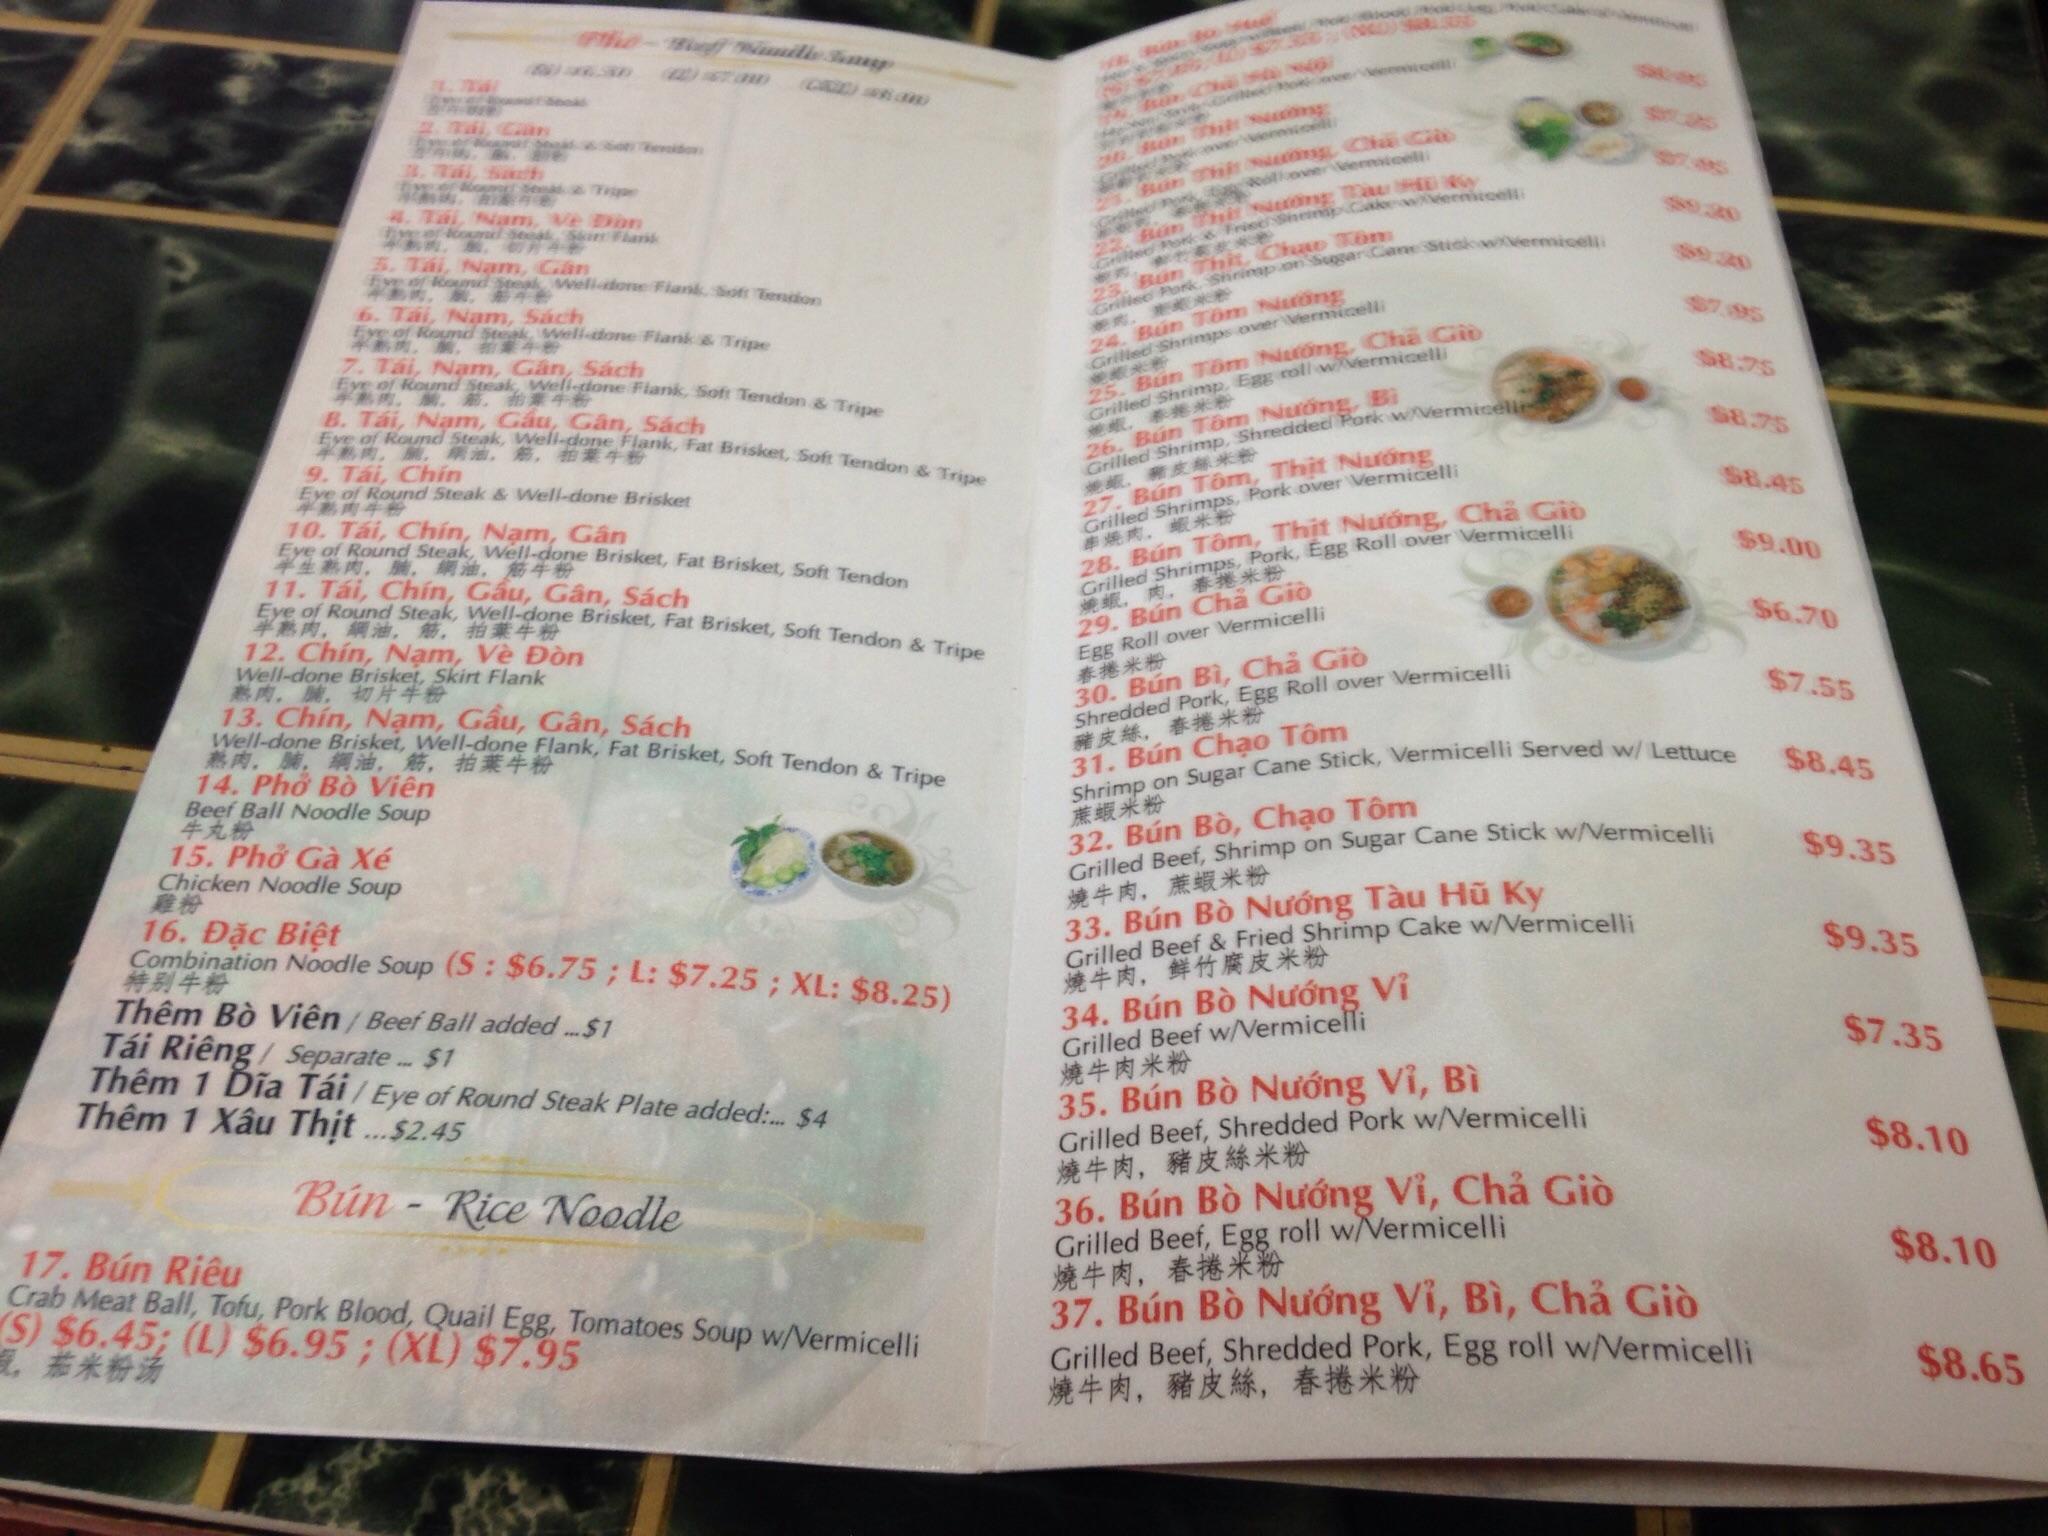 Phở - Beef Noodle Soup
1. Tái
Eye of Round Steak
2. Tái, Gân
Eye of Round Steak & Soft Tendon
3. Tái, Sách
Eye of Round Steak & Tripe
4. Tái, Nạm, Vè Đòn
Eye of Round Steak, Skirt Flank
5. Tái, Nạm, Gân
Eye of Round Steak, Well-done Flank, Soft Tendon
半熟肉, 腩, 筋牛粉
6. Tái, Nạm, Sách
Eye of Round Steak, Well-done Flank & Tripe
半熟肉, 腩, 拍葉牛粉
7. Tái, Nạm, Gân, Sách
Eye of Round Steak, Well-done Flank, Soft Tendon & Tripe
半熟肉, 腩, 筋, 拍葉牛粉
8. Tái, Nạm, Gầu, Gân, Sách
Eye of Round Steak, Well-done Flank, Fat Brisket, Soft Tendon & Tripe
半熟肉, 腩, 網油, 筋, 拍葉牛粉
9. Tái, Chín
Eye of Round Steak & Well-done Brisket
半熟肉牛粉
10. Tái, Chín, Nạm, Gân
Eye of Round Steak, Well-done Brisket, Fat Brisket, Soft Tendon
半生熟肉, 腩, 網油, 筋牛粉
11. Tái, Chín, Gầu, Gân, Sách
Eye of Round Steak, Well-done Brisket, Fat Brisket, Soft Tendon & Tripe
半熟肉, 網油, 筋, 拍葉牛粉
12. Chín, Nạm, Vè Đòn
Well-done Brisket, Skirt Flank
熟肉, 腩, 切片牛粉
13. Chín, Nạm, Gầu, Gân, Sách
Well-done Brisket, Well-done Flank, Fat Brisket, Soft Tendon & Tripe
熟肉, 腩, 網油, 筋, 拍葉牛粉
14. Phở Bò Viên
Beef Ball Noodle Soup
牛丸粉
15. Phở Gà Xé
Chicken Noodle Soup
雞粉
16. Đặc Biệt
Combination Noodle Soup (S : $6.75 ; L: $7.25 ; XL: $8.25)
特别牛粉
Thêm Bò Viên / Beef Ball added ...$1
Tái Riêng / Separate ... $1
Thêm 1 Dĩa Tái / Eye of Round Steak Plate added:... $4
Thêm 1 Xâu Thịt ...$2.45
Bún - Rice Noodle
17. Bún Riêu
Crab Meat Ball, Tofu, Pork Blood, Quail Egg, Tomatoes Soup w/Vermicelli
(S) $6.45; (L) $6.95 ; (XL) $7.95
茄米粉汤
18. Bún Bò Huế
19. Bún Chả Hà Nội
Grilled Pork over Vermicelli
20. Bún Thịt Nướng $7.25
Grilled Pork over Vermicelli
21. Bún Thịt Nướng, Chả Giò $7.95
Grilled Pork, Egg Roll over Vermicelli
22. Bún Thịt Nướng Tàu Hũ Ky $9.20
Grilled Pork & Fried Shrimp Cake w/Vermicelli
23. Bún Thịt, Chạo Tôm $9.20
Grilled Pork, Shrimp on Sugar Cane Stick w/Vermicelli
24. Bún Tôm Nướng $7.95
Grilled Shrimps over Vermicelli
燒蝦米粉
25. Bún Tôm Nướng, Chả Giò $8.75
Grilled Shrimp, Egg roll w/Vermicelli
燒蝦, 春捲米粉
26. Bún Tôm Nướng, Bì $8.75
Grilled Shrimp, Shredded Pork w/Vermicelli
燒蝦, 豬皮絲米粉
27. Bún Tôm, Thịt Nướng $8.45
Grilled Shrimps, Pork over Vermicelli
串燒肉, 蝦米粉
28. Bún Tôm, Thịt Nướng, Chả Giò $9.00
Grilled Shrimps, Pork, Egg Roll over Vermicelli
燒蝦, 肉, 春捲米粉
29. Bún Chả Giò $6.70
Egg Roll over Vermicelli
春捲米粉
30. Bún Bì, Chả Giò $7.55
Shredded Pork, Egg Roll over Vermicelli
豬皮絲, 春捲米粉
31. Bún Chạo Tôm $8.45
Shrimp on Sugar Cane Stick, Vermicelli Served w/ Lettuce
蔗蝦米粉
32. Bún Bò, Chạo Tôm $9.35
Grilled Beef, Shrimp on Sugar Cane Stick w/Vermicelli
燒牛肉, 蔗蝦米粉
33. Bún Bò Nướng Tàu Hũ Ky $9.35
Grilled Beef & Fried Shrimp Cake w/Vermicelli
燒牛肉, 鲜竹腐皮米粉
34. Bún Bò Nướng Vỉ $7.35
Grilled Beef w/Vermicelli
燒牛肉米粉
35. Bún Bò Nướng Vỉ, Bì $8.10
Grilled Beef, Shredded Pork w/Vermicelli
燒牛肉, 豬皮絲米粉
36. Bún Bò Nướng Vỉ, Chả Giò $8.10
Grilled Beef, Egg roll w/Vermicelli
燒牛肉, 春捲米粉
37. Bún Bò Nướng Vỉ, Bì, Chả Giò $8.65
Grilled Beef, Shredded Pork, Egg roll w/Vermicelli
燒牛肉, 豬皮絲, 春捲米粉